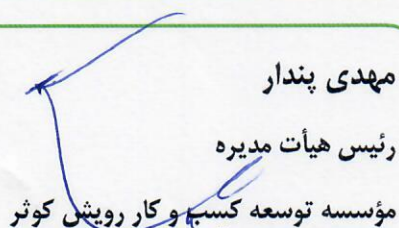 مهدی پندار
رئیس هیأت مدیره
مؤسسه توسعه کسب و کار رویش کوثر